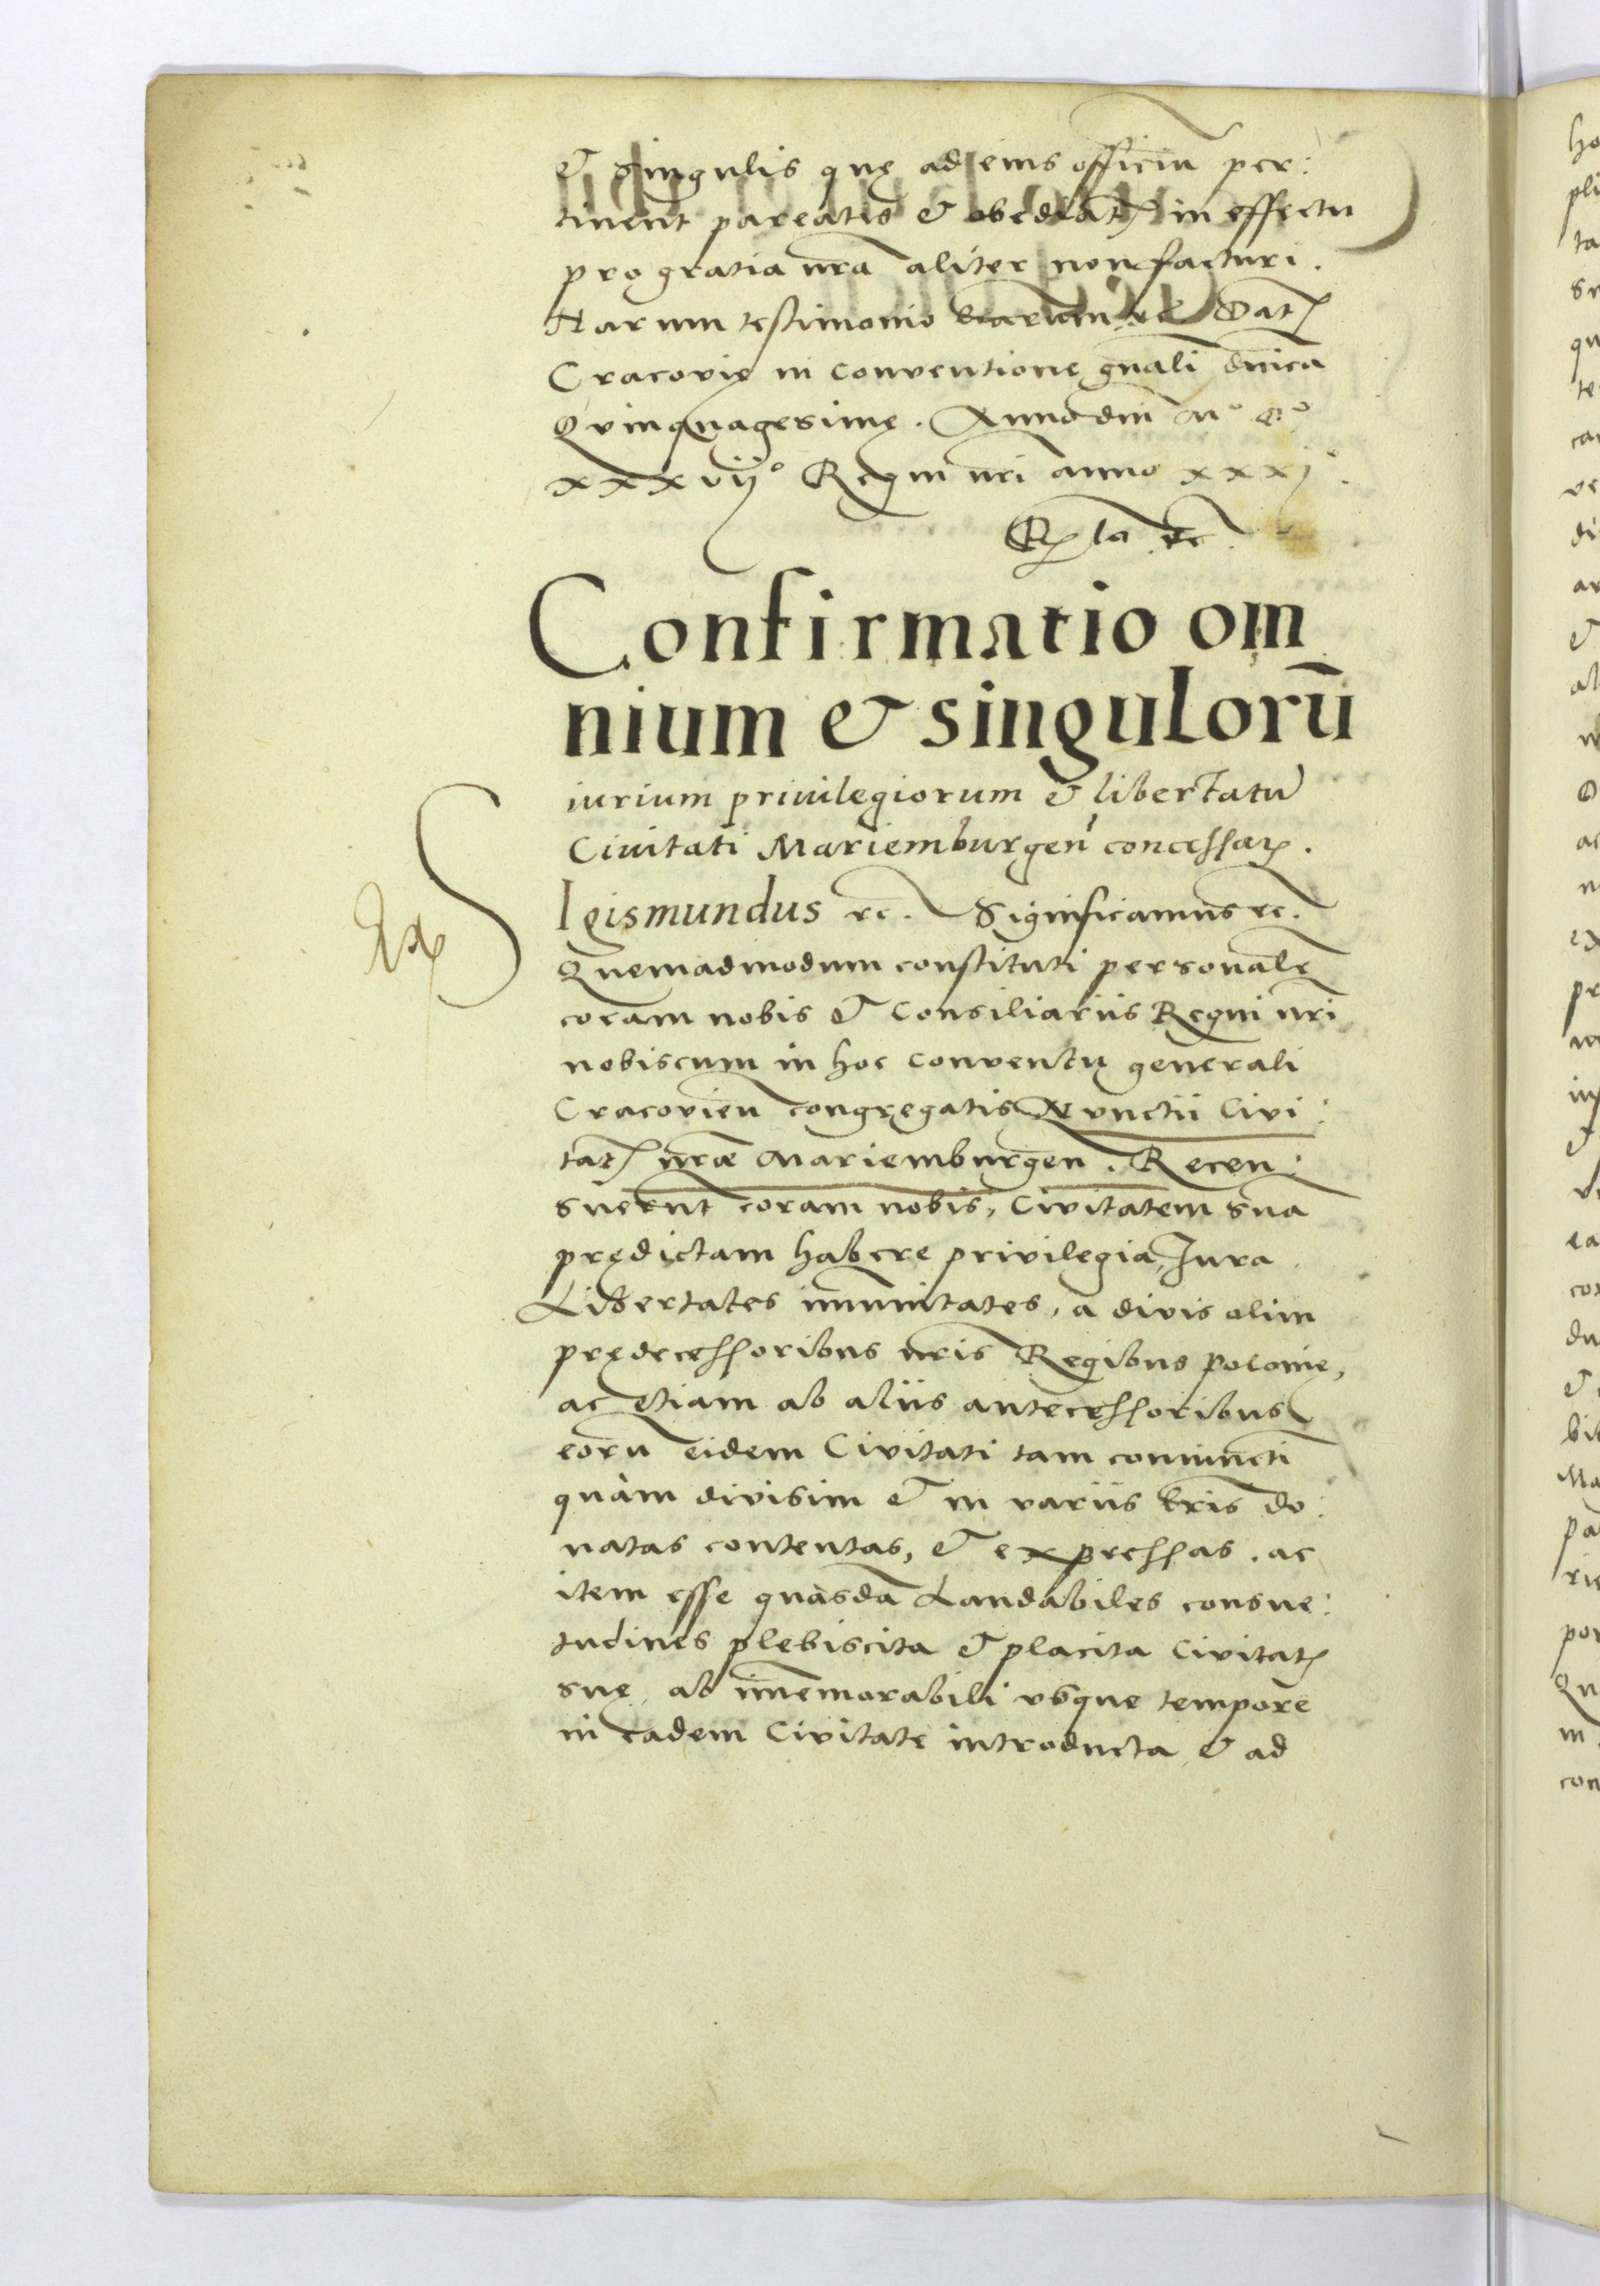 & singulis quę ad eius officiũ per:
tinent pareatis & obediatis in effectu
pro gratia nrã aliter non facturi.
Harum testimonio lrarum rc̃ Datẽ
Cracovię in conventione gnãli dnĩca
Quinquagesimę. Anno dnĩ Mº Qº
xxxvijº Regni nrĩ anno xxxjº.
Rla rc̃.
Confirmatio om
nium & singulorũ
iurium priuilegiorum & libertatũ
Ciuitati Mariemburgeñ concessaꝝ.
SIgismundus rc̃. Significamus rc̃.
Quemadmodum constituti personalę
coram nobis & Consiliariis Regni nrĩ
nobiscum in hoc conventu generali
Cracovieñ congregatis Nunctii Civi:
tatis nr̃æ Mariemburgen. Recen:
suerunt coram nobis, Civitatem suã
prędictam habere privilegia, Jura
Libertates imunitates, a divis olim
prędecessoribus nrĩs Regibus polonię,
ac etiam ab aliis antecessoribus
eorũ eidem Civitati tam coniuncti
quàm divisim & in variis lrĩs do:
natas contentas, & expressas. ac
item esse quàsdã Laudabiles consue:
tudines plebiscita & placita Civitatis
suę, ab im̃emorabili usque tempore
in eadem Civitate introducta & ad